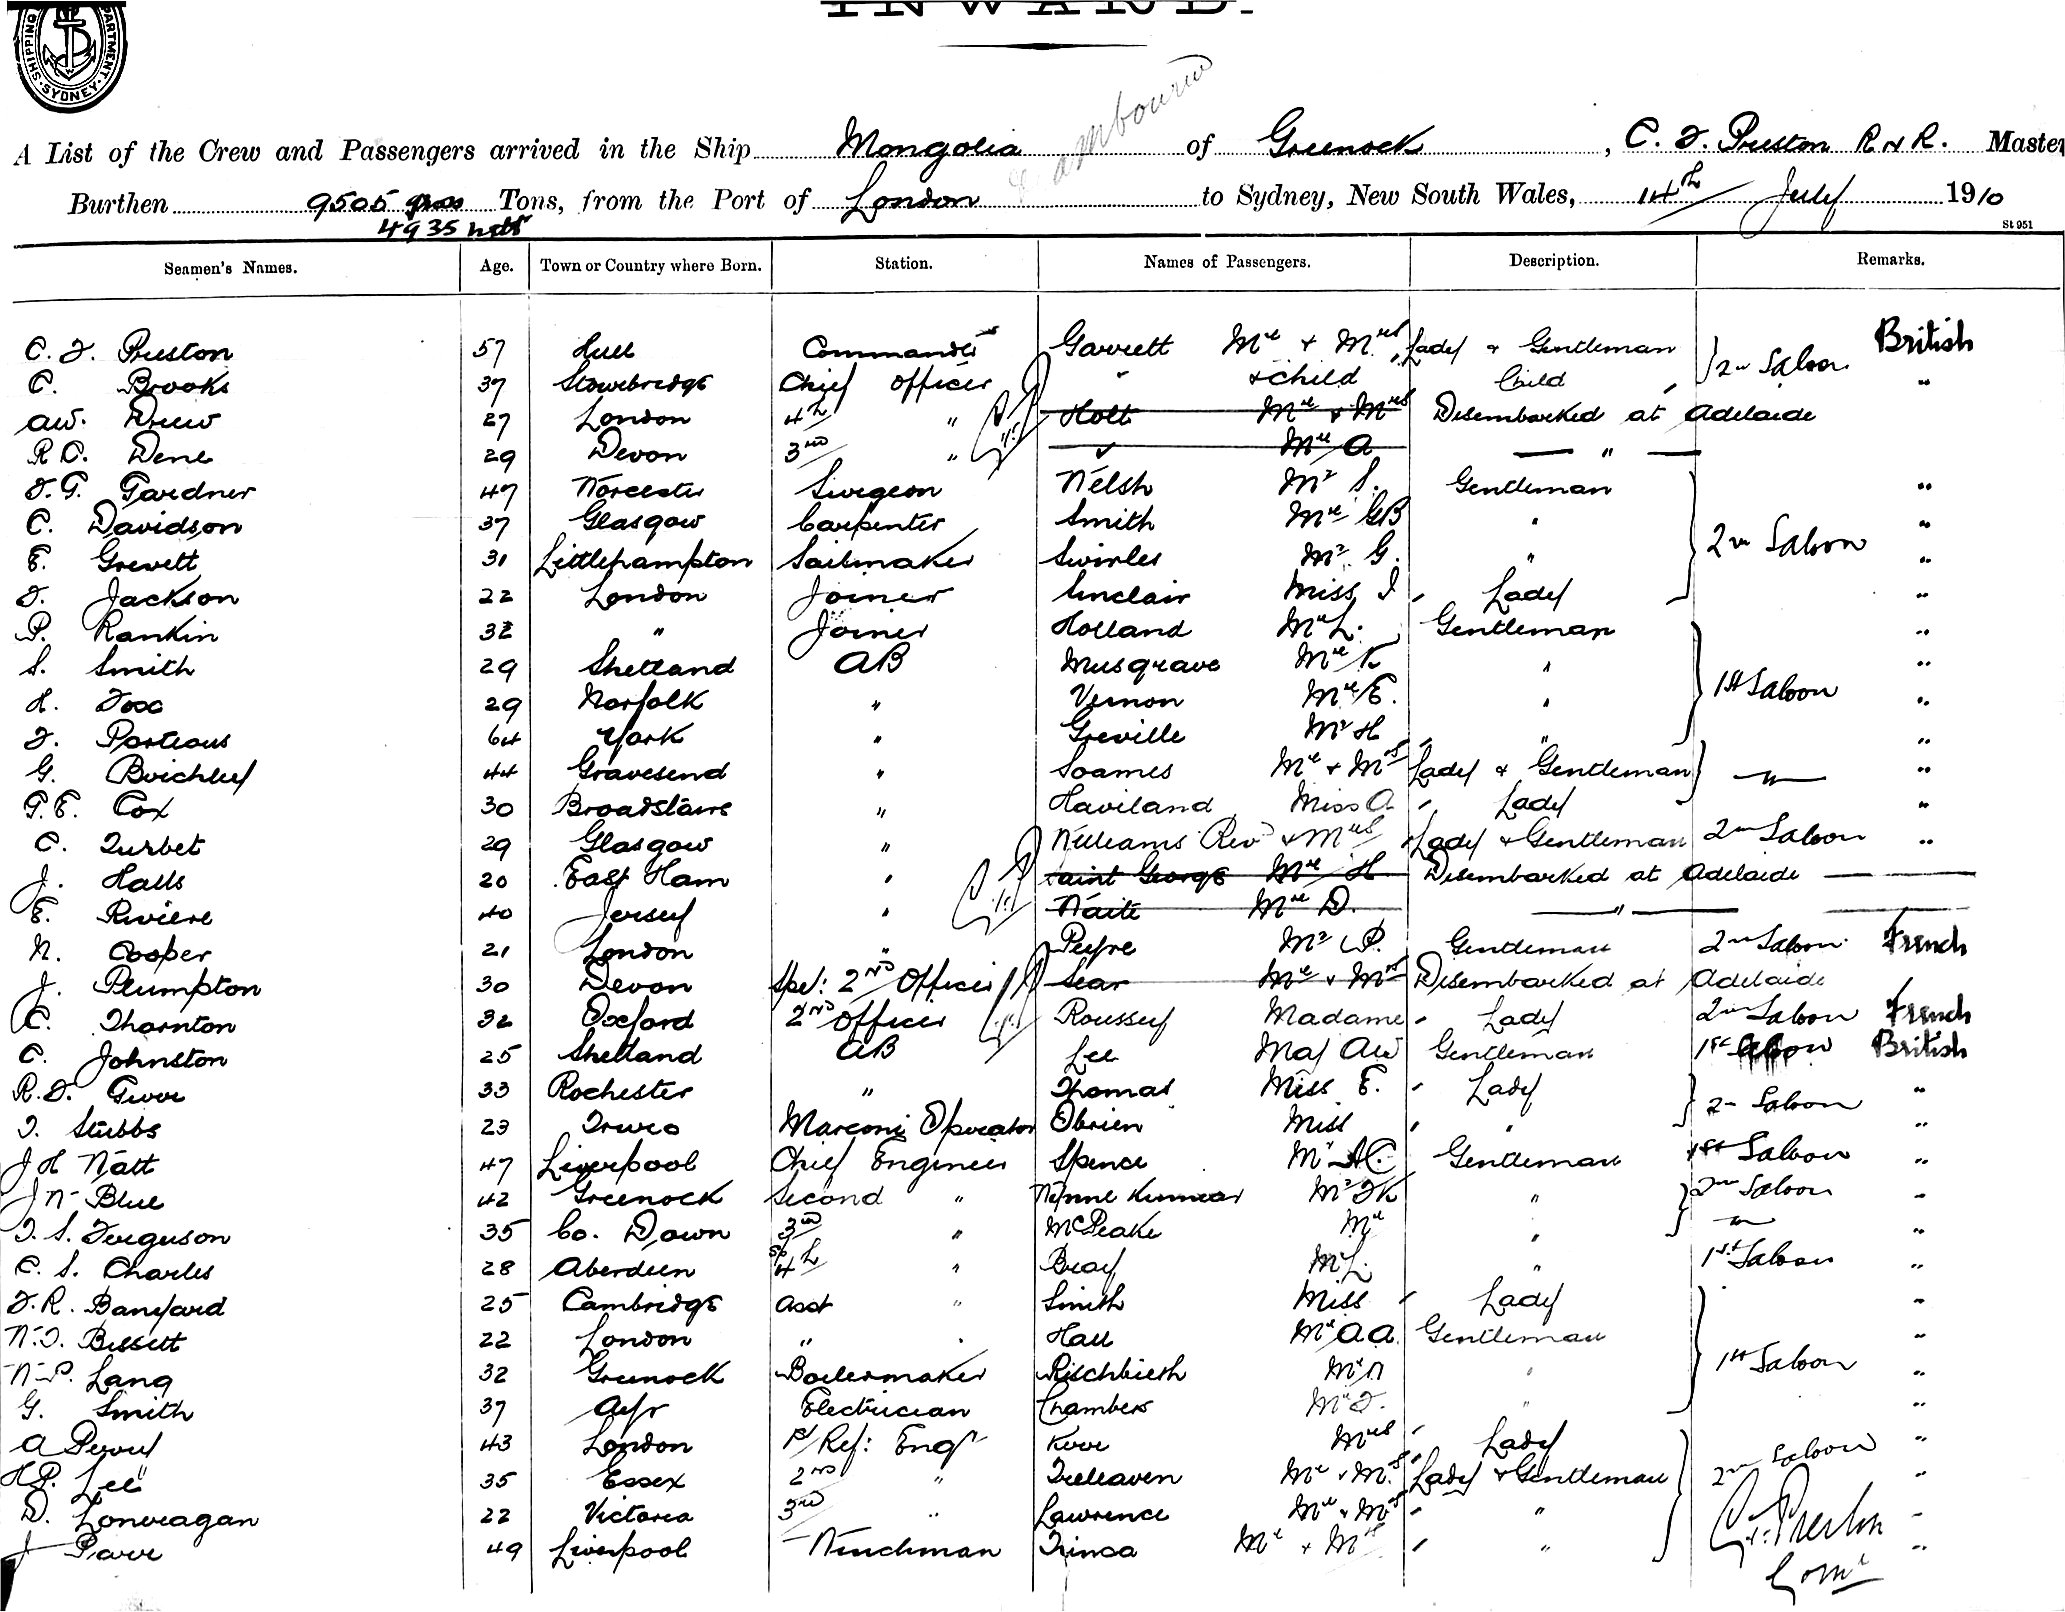 INWARD.
SHIPPING DEPARTMENT. SYDNEY.
A List of the Crew and Passengers arrived in the Ship Mongolia of Greenock, C. F. Preston R N R. Master
Burthen 9505 gross Tons, from the Port of London to Sydney, New South Wales, 14th July 1910
4935 nett
St 951
Seamen's Names. Age. Town or Country where Born. Station. Names of Passengers. Description. Remarks.
C. F. Preston 57 Hull Commander Garrett Mr & Mrs Lady & Gentleman 2nd Saloon British
C. Brooks 37 Chief Officer " & child Child "
AW. Drew 27 London 4th " Holt Mr & Mrs Disembarked at Adelaide
R C. Dene 29 Devon 3rd " " Mr A "
F. G. Gardner 47 Worcester Surgeon Welsh Mr S. Gentleman "
C. Davidson 37 Glasgow Carpenter Smith Mr GB " 2nd Saloon "
E. Grevett 31 Littlehampton Sailmaker Swirles Mr G. " "
F. Jackson 22 London Joiner Sinclair Miss I Lady "
P. Rankin 32 " Joiner Holland Mr L. Gentleman "
S. Smith 29 Shetland AB Musgrave Mr K " "
H. Fox 29 Norfolk " Vernon Mr E. " 1st Saloon "
F. Porteous 64 York " Greville Mr H " "
G. 44 Gravesend " Soames Mr & Mrs Lady & Gentleman " "
G. E. Cox 30 Broadstairs " Haviland Miss A. Lady "
C. Turbet 29 Glasgow " Williams Rev & Mrs Lady & Gentleman 2nd Saloon "
J. Halls 20 East Ham " Saint George Mr H Disembarked at Adelaide
E. Riviere 40 Jersey " Waite Mr D. "
W. Cooper 21 London " Peyre Mr P. Gentleman 2nd Saloon French
J. Plumpton 30 Devon Spel: 2nd Officer Sear Mr & Mrs Disembarked at Adelaide
C. Thornton 32 Oxford 2nd Officer Madame Lady 2nd Saloon French
C. Johnston 25 Shetland AB Lee Maj AW Gentleman 1st Saloon British
R. F. 33 Rochester " Thomas Miss E. Lady "
T. Stubbs 23 Truro Marconi Operator Obrien Miss " 2nd Saloon "
J H Watt 47 Liverpool Chief Engineer Spence Mr AC. Gentleman 1st Saloon "
J W Blue 42 Greenock Second " Mr FK " 2nd Saloon "
T. S. Ferguson 35 Co. Down 3rd " McPeake Mr " " "
C. S. Charles 28 Aberdeen Sp 4th " Bray Mr L. " 1st Saloon "
F. R. Banyard 25 Cambridge Asst " Smith Miss Lady "
W. T. Bissett 22 London " " Hall Mr A A. Gentleman "
W. P. Lang 32 Greenock Boilermaker Rischbieth Mr " 1st Saloon "
G. Smith 37 Ayr Electrician Chambers Mr F. " "
A 43 London Ref: Engr Mrs Lady "
H P. Lee 35 Essex 2nd " Treleaven Mr & Mrs Lady & Gentleman 2nd Saloon "
D. 22 Victoria 3rd " Lawrence Mr & Mrs " "
J 49 Liverpool Winchman Mr & Mrs " "
C. F. Preston
Comr